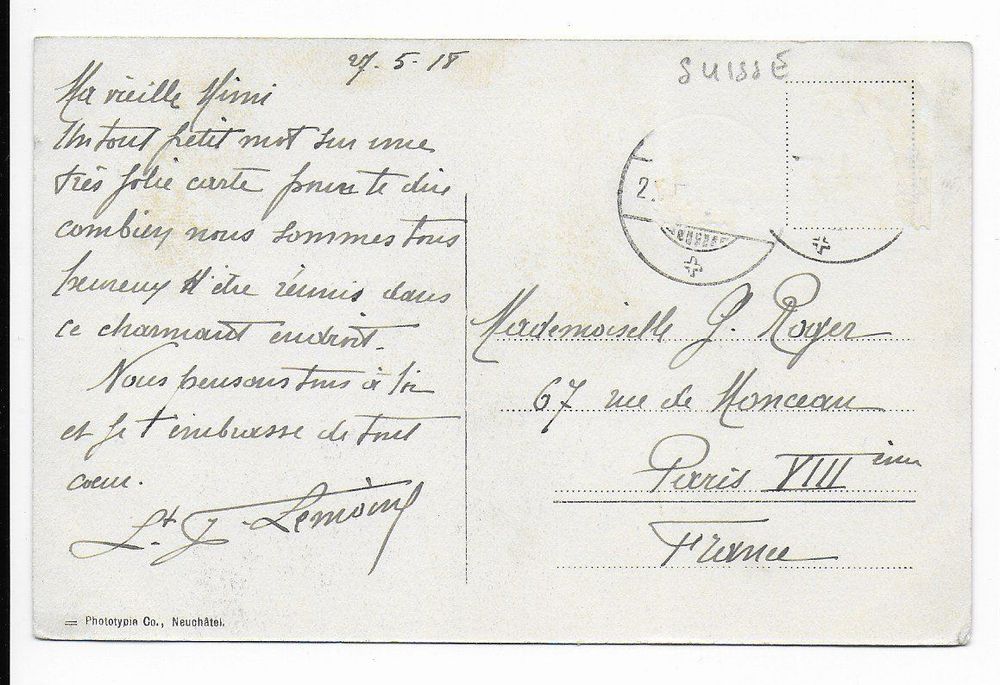 27-5-18
SUISSE
Ma vieille Mimi
Un tout petit mot sur une
très jolie carte pour te dire
combien nous sommes tous
heureux d'être réunis dans
ce charmant endroit.
Nous pensons tous à toi
et je t'embrasse de tout
cœur.
Lt. J. Lemoine
2
Mademoiselle G. Roger
67 rue de Monceau
Paris VIII ème
France
= Phototypie Co., Neuchâtel.